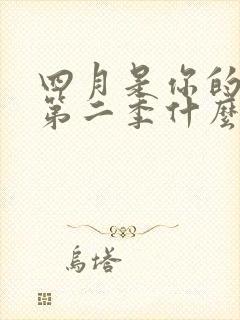 四月是你的
第二季什麼
烏塔